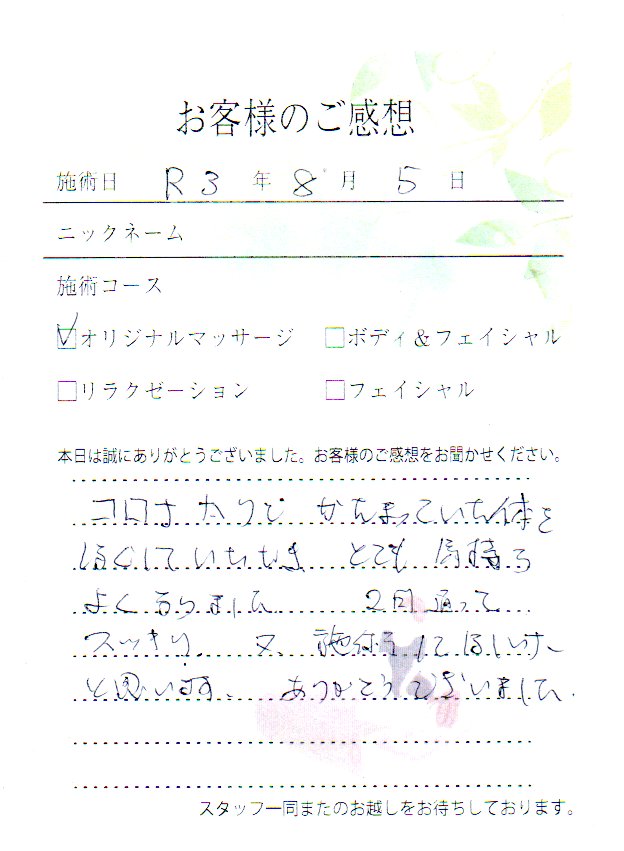 お客様のご感想
施術日 R3 年 8 月 5 日
ニックネーム
施術コース
オリジナルマッサージ ボディ&フェイシャル
リラクゼーション フェイシャル
本日は誠にありがとうございました。お客様のご感想をお聞かせください。
コロナ かたまっていた体を
ほぐしていただき とても 気持ち
よくなりました 2回通って
スッキリ。 又 施術をしてほしい
と思います。 ありがとうございました。
スタッフ一同またのお越しをお待ちしております。